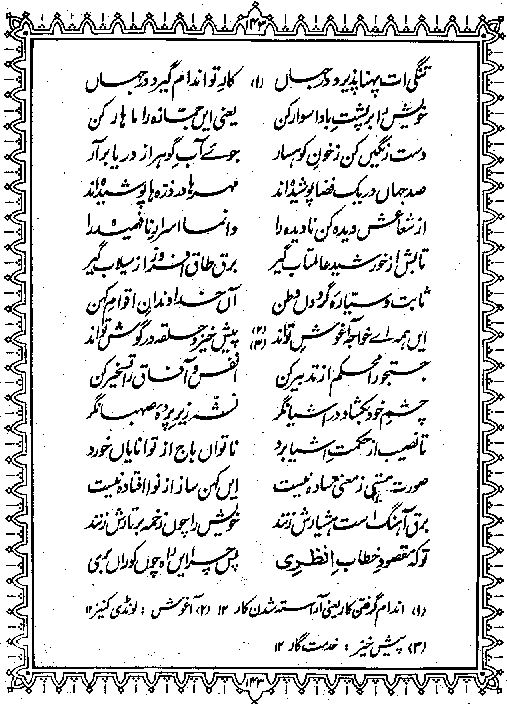 ۱۴۳
تنگی ات پہنا پذیرد در جہاں کار تو اندام گیرد در جہاں (۱)
خویش را بر پشت باد اسوار کن یعنی ایں جمازہ را ماہار کن
دست رنگیں کن ز خون کوہسار جوئے آب گوہر از دریا برآر
صد جہاں در یک فضا پوشیدہ اند مہرہا در ذرہ ہا پوشیدہ اند
از شعاعش دیدہ کن نادیدہ را وا نما اسرار نافہمیدہ را
تابش از خورشید عالمتاب گیر برق طاق افروز از سیلاب گیر
ثابت و سیارۂ گردوں وطن آں خداوندان اقوام کہن
ایں ہمہ اے خواجہ آغوش تواند (۲) پیش خیز و حلقہ در گوش تواند (۳)
جستجو را محکم از تدبیر کن انفس و آفاق را تسخیر کن
چشم خود بکشا و در اشیا نگر نشہ زیر پردۂ صہبا نگر
تا نصیب از حکمت اشیا برد ناتواں باج از توانایاں خورد
صورت ہستی ز معنی سادہ نیست ایں کہن ساز از نوا افتادہ نیست
برق آہنگ است ہشیارش زنند خویش را چوں زخمہ بر تارش زنند
تو کہ مقصود خطاب اُنظُری پس چرا ایں راہ چوں کوراں بری
(۱) اندام گرفتن کار یعنی آراستہ شدن کار ۱۲ (۲) آغوش : لونڈی کنیز ۱۲
(۳) پیش خیز : خدمت گار ۱۲
۱۴۳